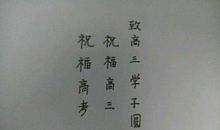 致高三学子圆
祝福高三
祝福高考